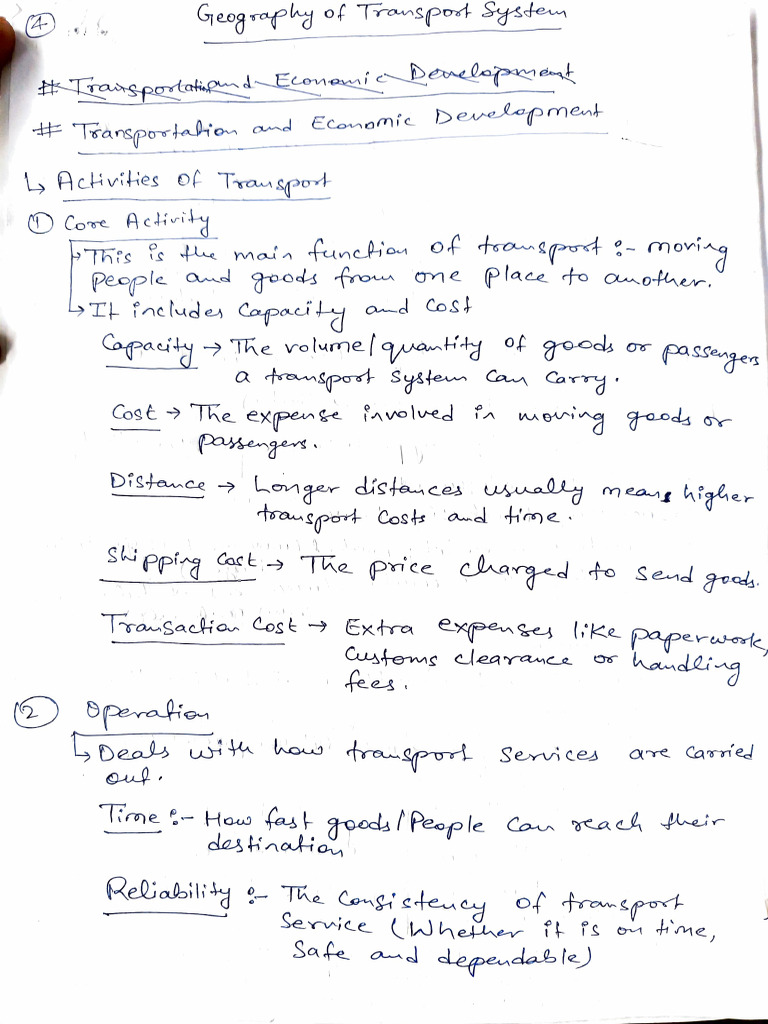 4
Geography of Transport System
# Transportation and Economic Development
# Transportation and Economic Development
↳ Activities of Transport
① Core Activity
↳ This is the main function of transport :- moving
people and goods from one place to another.
↳ It includes Capacity and Cost
Capacity → The volume/quantity of goods or passengers
a transport system can carry.
Cost → The expense involved in moving goods or
passengers.
Distance → Longer distances usually means higher
transport costs and time.
Shipping Cost → The price charged to send goods.
Transaction Cost → Extra expenses like paperwork,
customs clearance or handling
fees.
② Operation
↳ Deals with how transport services are carried
out.
Time :- How fast goods/People can reach their
destination
Reliability :- The Consistency of transport
Service (Whether it is on time,
Safe and dependable)